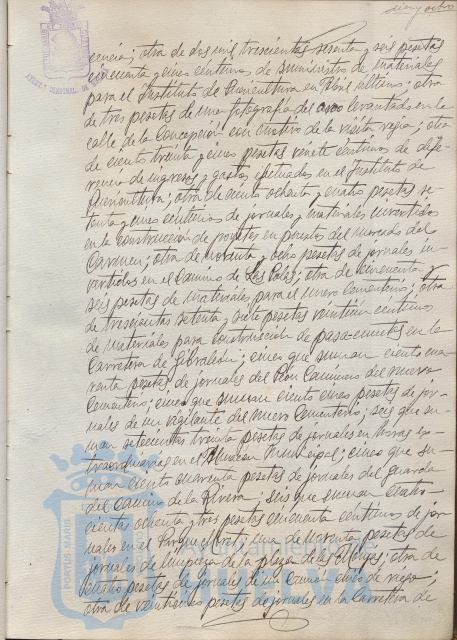 diez y ocho
cuencia; otra de dos mil trescientas sesenta y seis pesetas
cincuenta y cinco céntimos de suministro de materiales
para el Instituto de Puericultura en Abril último; otra
de tres pesetas de una fotografía del arco levantado en la
calle de la Concepción con motivo de la visita regia; otra
de ciento treinta y cinco pesetas veinte céntimos de dife-
rencia de ingresos y gastos efectuados en el Instituto de
Puericultura; otra de ciento ochenta y cuatro pesetas se-
tenta y cinco céntimos de jornales y materiales invertidos
en la construcción de poyetes en puestos del mercado del
Carmen; otra de noventa y ocho pesetas de jornales in-
vertidos en el Camino de Las Colas; otra de cincuenta y
seis pesetas de materiales para el nuevo Cementerio; otra
de trescientas setenta y siete pesetas veintiun céntimos
de materiales para construcción de pasa-cunetas en la
Carretera de Gibraleón; cinco que suman ciento cua-
renta pesetas de jornales del Peón Caminero del nuevo
Cementerio; cinco que suman ciento cinco pesetas de jor-
nales de un vigilante del nuevo Cementerio; seis que su-
man setecientas treinta pesetas de jornales en horas ex-
traordinarias en el Almacen Municipal; cinco que su-
man ciento cuarenta pesetas de jornales del guarda
del camino de la Rivera; seis que suman cuatro-
cientas ochenta y tres pesetas cincuenta céntimos de jor-
nales en el Parque; otra de noventa pesetas de
jornales de limpieza de la plaza de las Monjas; otra de
cuatro pesetas de jornales de un camión cuba de riego;
otra de veintiocho pesetas de jornales en la Carretera de